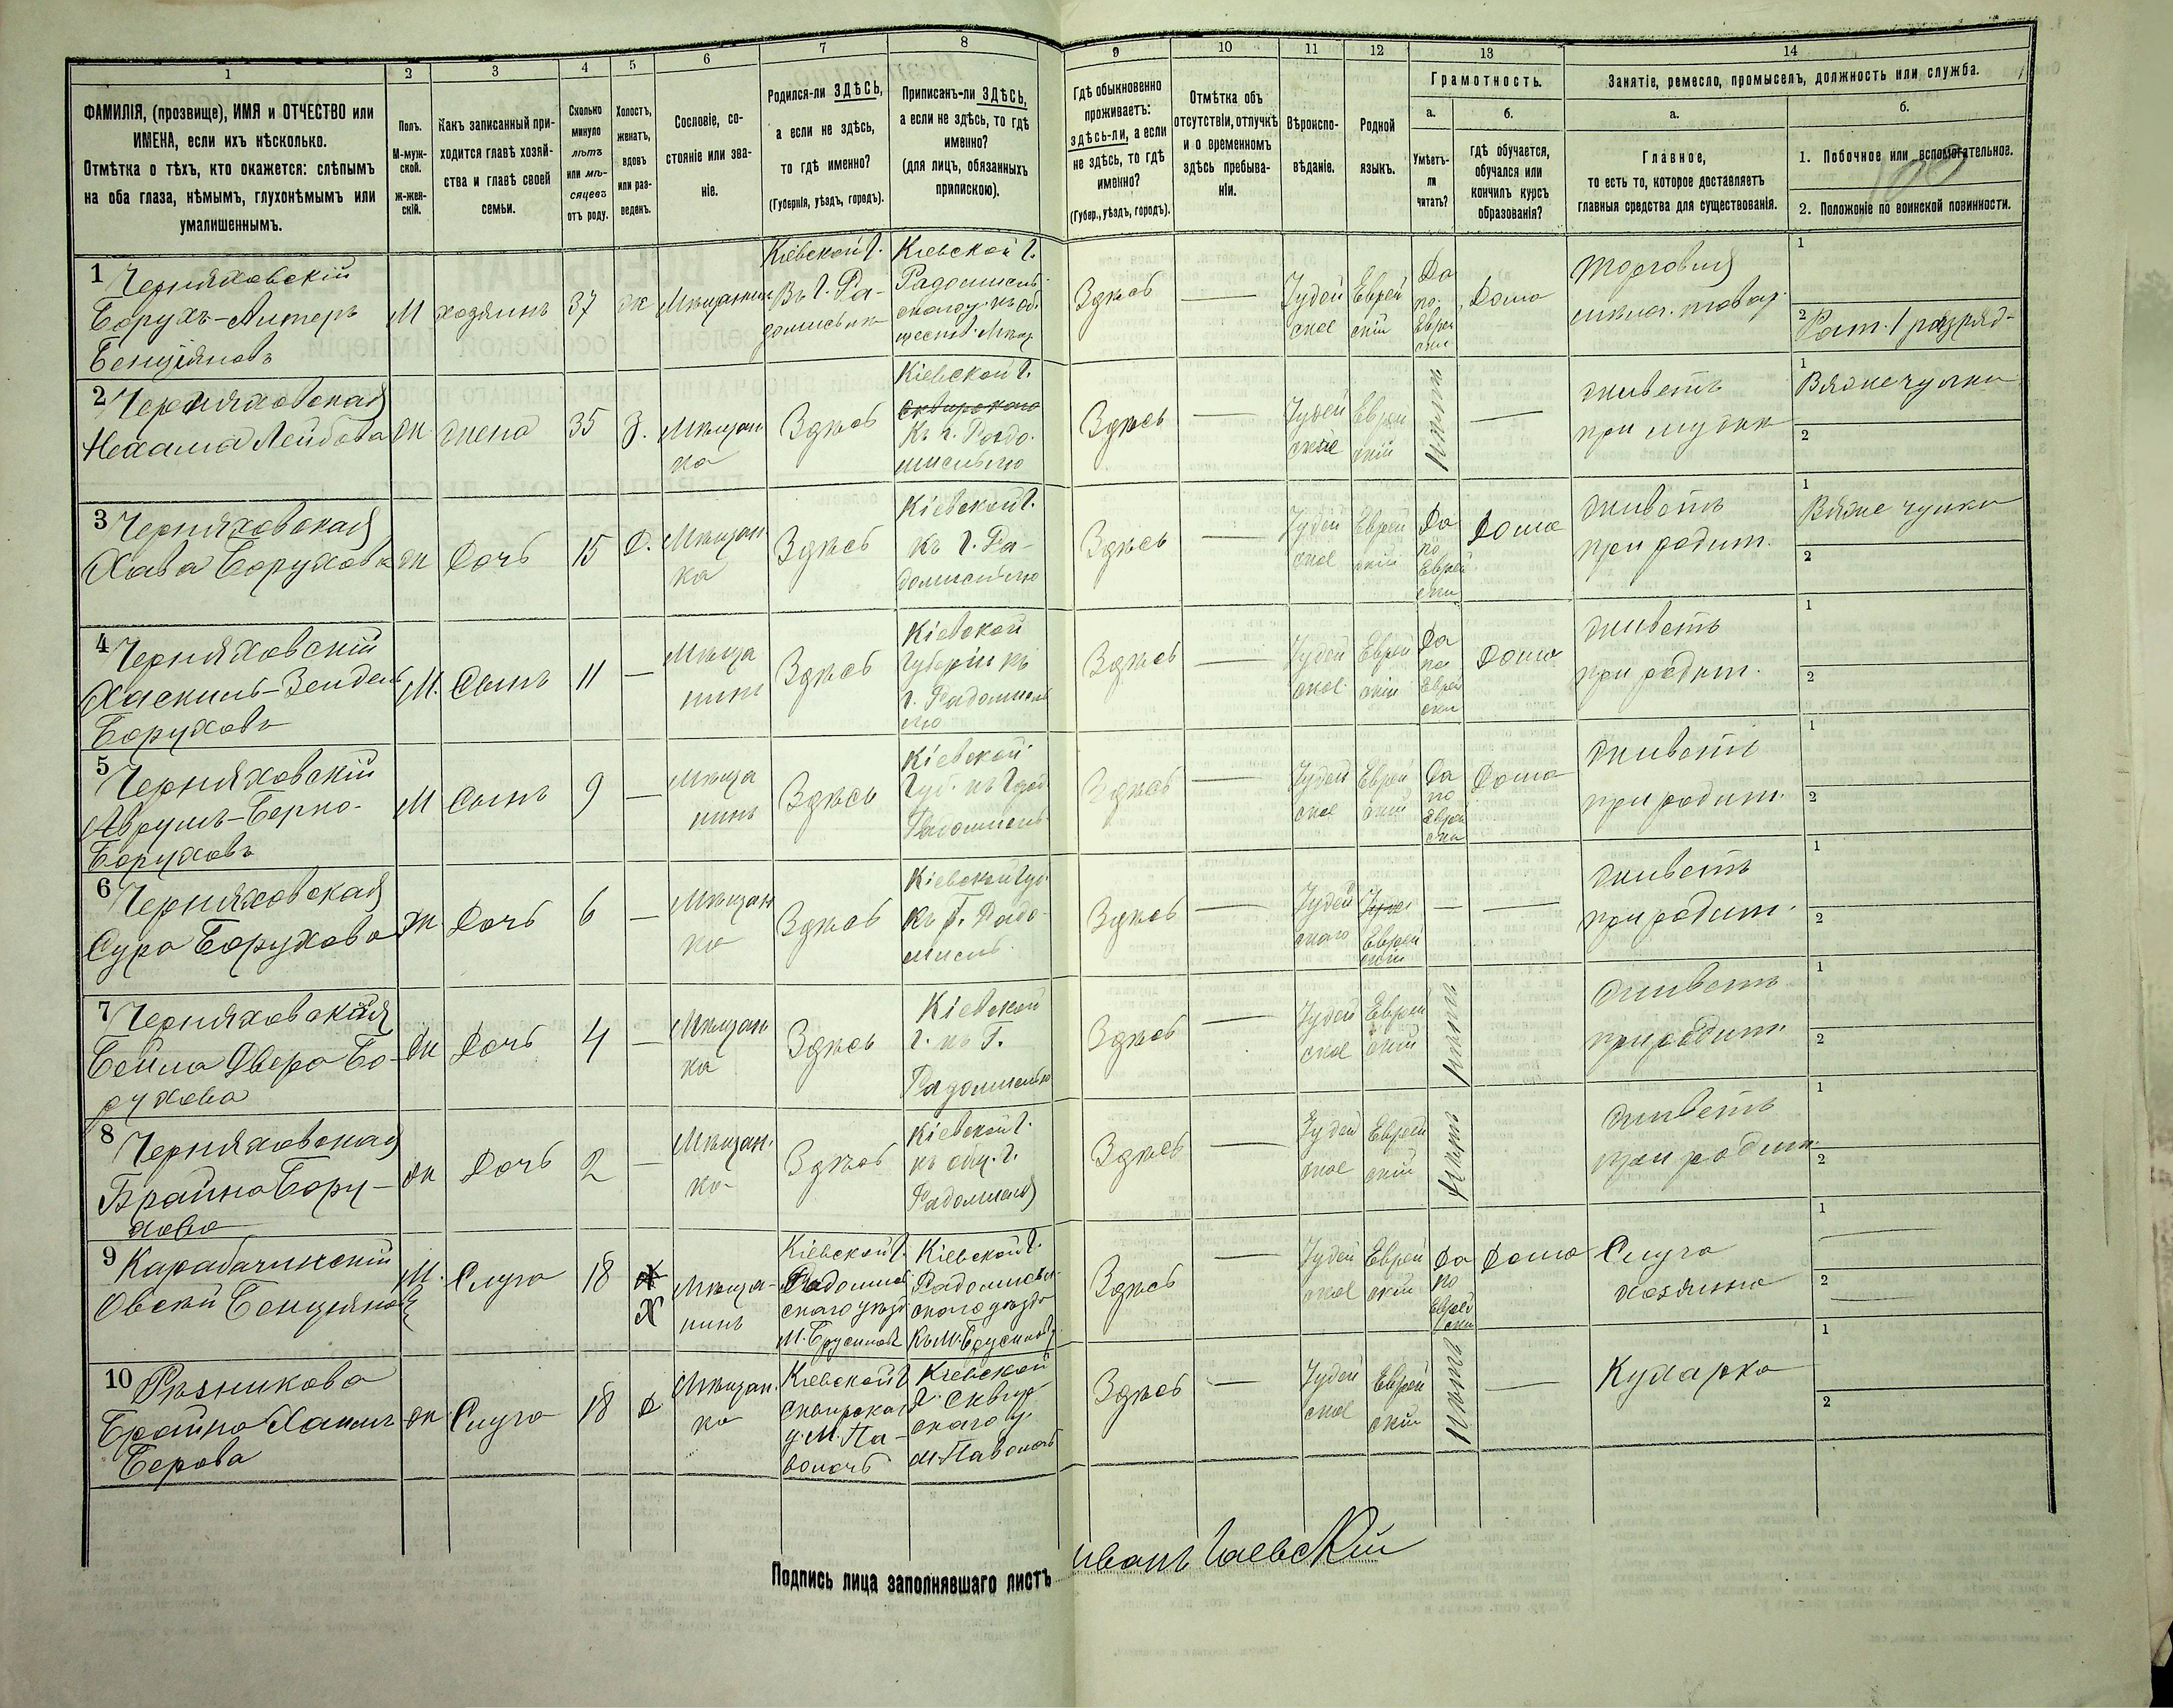 1 2 3 4 5 6 7 8 9 10 11 12 13 14
ФАМИЛІЯ, (прозвище), ИМЯ и ОТЧЕСТВО или
ИМЕНА, если ихъ нѣсколько.
Отмѣтка о тѣхъ, кто окажется: слѣпымъ
на оба глаза, нѣмымъ, глухонѣмымъ или
умалишеннымъ.
Полъ.
М-муж-
ской.
ж-жен-
скій.
Какъ записанный при-
ходится главѣ хозяй-
ства и главѣ своей
семьи.
Сколько
минуло
лѣтъ
или мѣ-
сяцевъ
отъ роду.
Холостъ,
женатъ,
вдовъ
или раз-
веденъ.
Сословіе, со-
стояніе или зва-
ніе.
Родился-ли ЗДѢСЬ,
а если не здѣсь,
то гдѣ именно?
(Губернія, уѣздъ, городъ).
Приписанъ-ли ЗДѢСЬ,
а если не здѣсь, то гдѣ
именно?
(для лицъ, обязанныхъ
припискою).
Гдѣ обыкновенно
проживаетъ:
здѣсь-ли, а если
не здѣсь, то гдѣ
именно?
(Губер., уѣздъ, городъ).
Отмѣтка объ
отсутствіи, отлучкѣ
и о временномъ
здѣсь пребыва-
ніи.
Вѣроиспо-
вѣданіе.
Родной
языкъ.
Грамотность.
а.
Умѣетъ-
ли
читать?
б.
гдѣ обучается,
обучался или
кончилъ курсъ
образованія?
Занятіе, ремесло, промыселъ, должность или служба.
а.
Главное,
то есть то, которое доставляетъ
главныя средства для существованія.
б.
1. Побочное или вспомогательное.
2. Положеніе по воинской повинности.
1 Черняховскій
Борухъ-Алтеръ
Бенціяновъ
М
хозяинъ
37
ж
Мѣщанинъ
Кіевской Г.
Въ Г. Ра-
домыслѣ
Кіевской Г.
Здѣсь
—
Іудей
ское
Еврей
скій
Да
по
Еврей
ски
Дома
Торговля
1
2
2 Черняховская
Нехама Лейбова
ж
жена
35
З.
Мѣщан
ка
Здѣсь
Кіевской Г.
Сквирского
Къ г. Радо
мыслю
Здѣсь
—
Іудей
ское
Еврей
скій
Нѣтъ
—
живетъ
при мужѣ
1 Вяже чулки
2
3 Черняховская
Хава Борухова
ж
Дочь
15
Д.
Мѣщан
ка
Здѣсь
Кіевской Г.
Къ Г. Ра-
домыслю
Здѣсь
—
Іудей
ское
Еврей
скій
Да
по
Еврей
ски
Дома
живетъ
при родит.
1 Вяже чулки
2
4 Черняховскій
Хаскиль-Зендель
Боруховъ
М.
Сынъ
11
—
Мѣща
нинъ
Здѣсь
Кіевской
Губерніи къ
г. Радомысл
лю
Здѣсь
—
Іудей
ское
Еврей
скій
Да
по
Еврей
ски
Дома
живетъ
при родит.
1
2
5 Черняховскій
Аврумъ-Берко-
Боруховъ
М
Сынъ
9
—
Мѣща
нинъ
Здѣсь
Кіевской
Здѣсь
—
Іудей
ское
Еврей
скій
Да
по
Еврей
ски
Дома
живетъ
при родит.
1
2
6 Черняховская
Сура Борухова
ж
Дочь
6
—
Мѣщан
ка
Здѣсь
Кіевской Губ.
Къ г. Радо-
мысль
Здѣсь
—
Іудей
ского
Еврей
скій
—
—
живетъ
при родит.
1
2
7 Черняховская
Бейла Двера Бо-
рухова
ж
Дочь
4
—
Мѣщан
ка
Здѣсь
Кіевской
Г. къ Г.
Радомыслю
Здѣсь
—
Іудей
ское
Еврей
скій
Нѣтъ
живетъ
при родит.
1
2
8 Черняховская
Брайна Бору-
хова
ж
Дочь
2
—
Мѣщан.
ка
Здѣсь
Кіевской Г.
Здѣсь
—
Іудей
ское
Еврей
скій
Нѣтъ
живетъ
при родит.
1
2
9 Карабачинскій
М.
Слуга
18
Х
Мѣща-
нинъ
Кіевской Г.
Радомысл
скаго уѣзда
М. Брусиловъ
Кіевской Г.
Радомысл-
скаго уѣзда
Къ М. Брусиловъ
Здѣсь
—
Іудей
ское
Еврей
скій
Да
по
Еврей
ски
Дома
Слуга
хозяина
1
2
10 Рѣзникова
Брайна Хаим
Берова
ж
Слуга
18
Д
Мѣщан.
ка
Кіевской Г
Сквирскаг
у. М. Па-
волочь
Кіевской
Г. Сквир
скаго у.
м. Паволочь
Здѣсь
—
Іудей
ское
Еврей
скій
Нѣтъ
—
Кухарка
1
2
Подпись лица заполнявшаго листъ